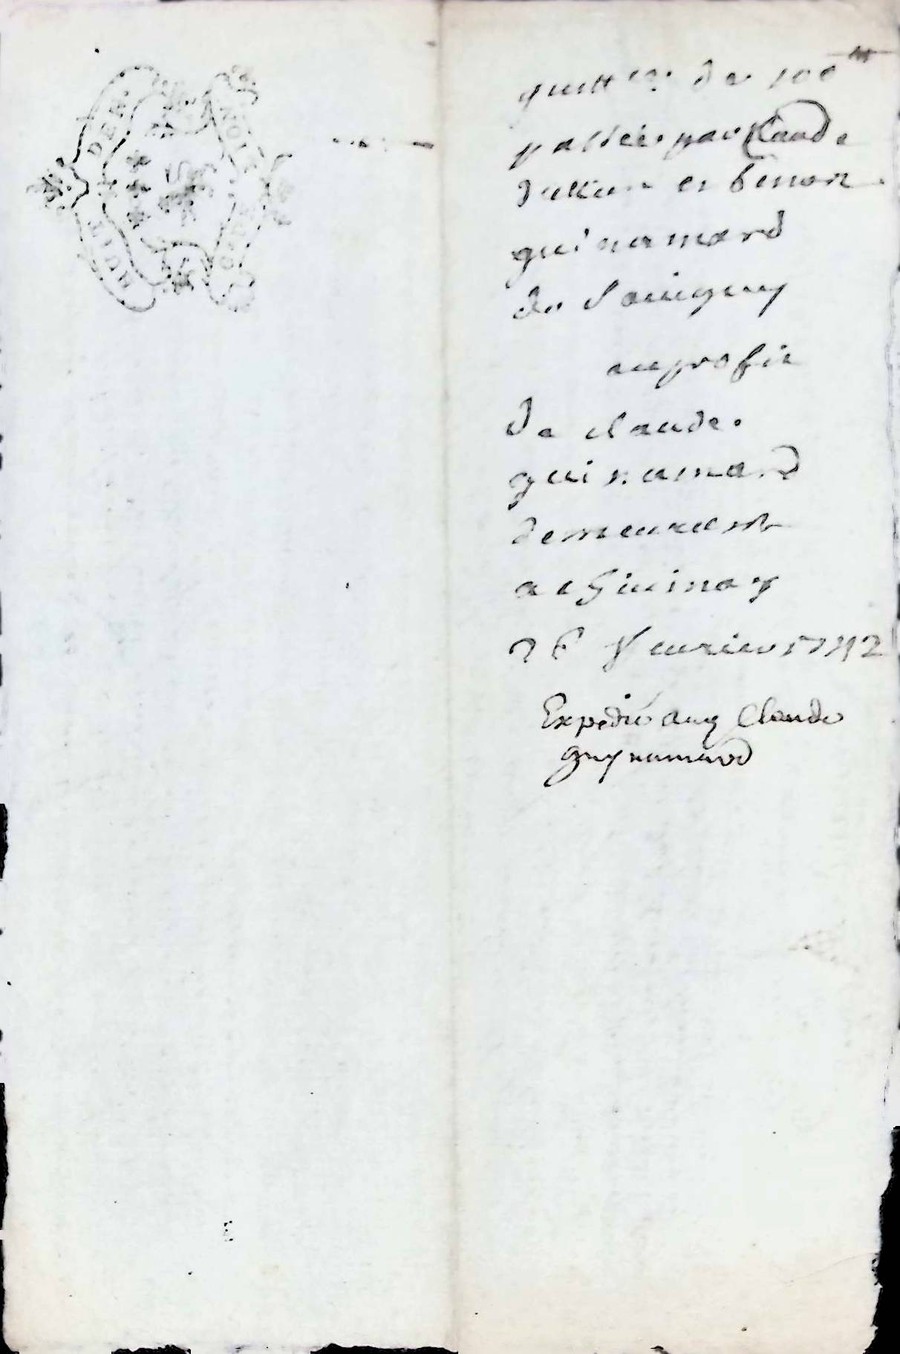 HUIT DEN.
quitt ce de 100 tt
passée par Claude
et benoit
guinamard
de Savigny
au profit
de claude
guinamard
demeurant
a chivinay
26 feurier 1742
Expedié auq Claude
guynamard